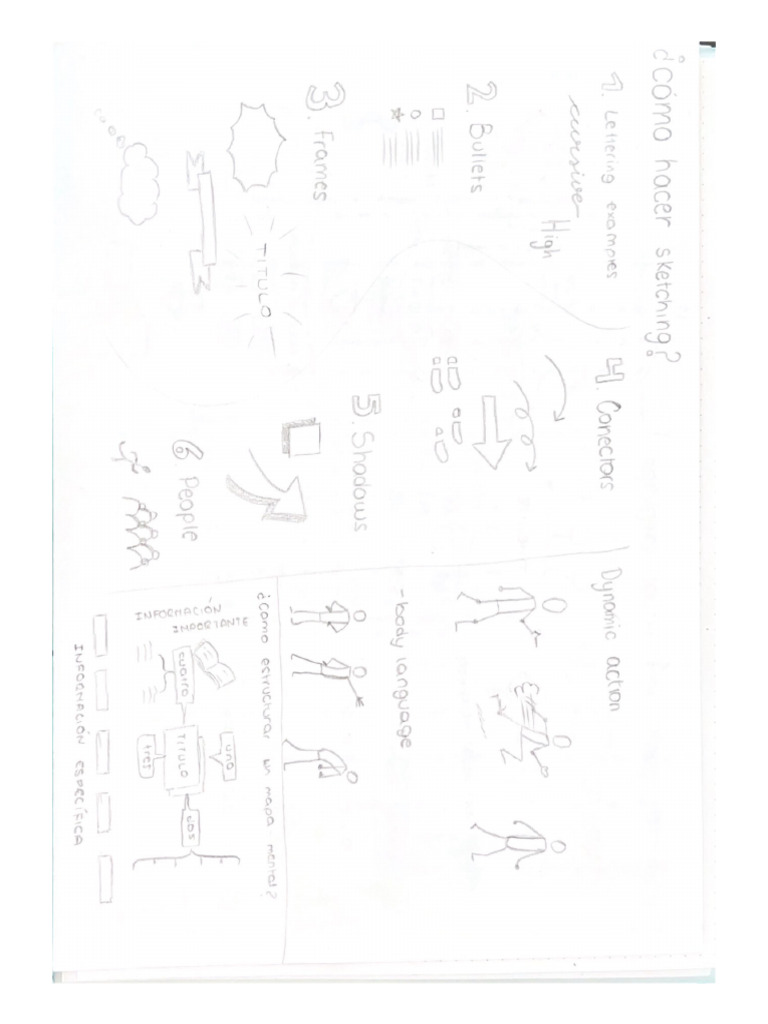 ¿cómo hacer sketching?
1. Lettering examples
cursive
High
2. Bullets
3. Frames
TITULO
4. Conectors
5. Shadows
6. People
Dynamic action
- body language
¿como estructurar un mapa mental?
INFORMACIÓN
IMPORTANTE
uno
cuatro
TITULO
dos
tres
INFORMACIÓN ESPECÍFICA